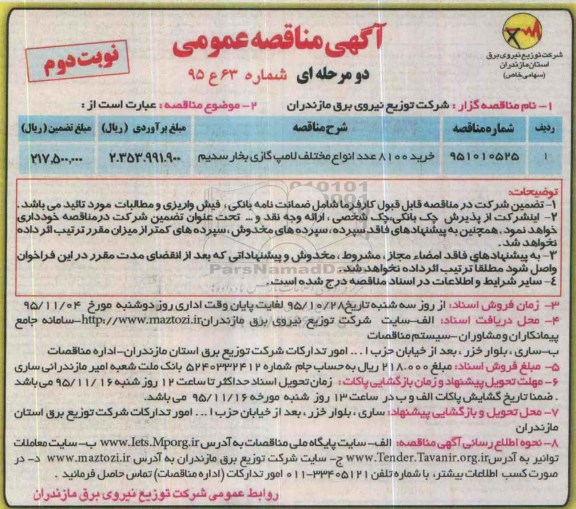 آگهی مناقصه عمومی
دو مرحله ای شماره ۶۳ ع ۹۵
نوبت دوم
شرکت توزیع نیروی برق
استان مازندران
(سهامی خاص)
۱- نام مناقصه گزار: شرکت توزیع نیروی برق مازندران ۲- موضوع مناقصه: عبارت است از:
ردیف شماره مناقصه شرح مناقصه مبلغ برآوردی (ریال) مبلغ تضمین (ریال)
۱ ۹۵۱۰۱۰۵۲۵ خرید ۸۱۰۰ عدد انواع مختلف لامپ گازی بخار سدیم ۲.۳۵۳.۹۹۱.۹۰۰ ۲۱۷.۵۰۰.۰۰۰
توضیحات:
۱- تضمین شرکت در مناقصه قابل قبول کارفرما شامل ضمانت نامه بانکی، فیش واریزی و مطالبات مورد تائید می باشد.
۲- اینشرکت از پذیرش چک بانکی، چک شخصی، ارائه وجه نقد و ... تحت عنوان تضمین شرکت در مناقصه خودداری
خواهد نمود. همچنین به پیشنهادهای فاقد سپرده، سپرده های مخدوش، سپرده های کمتر از میزان مقرر ترتیب اثر داده
نخواهد شد.
۳- به پیشنهادهای فاقد امضاء مجاز، مشروط، مخدوش و پیشنهاداتی که بعد از انقضای مدت مقرر در این فراخوان
واصل شود مطلقا ترتیب اثر داده نخواهد شد.
۴- سایر شرایط و اطلاعات در اسناد مناقصه درج شده است.
ParsNamadData
۳- زمان فروش اسناد: از روز سه شنبه تاریخ ۹۵/۱۰/۲۸ لغایت پایان وقت اداری روز دوشنبه مورخ ۹۵/۱۱/۰۴
۴- محل دریافت اسناد: الف- سایت شرکت توزیع نیروی برق مازندران http://www.maztozi.ir- سامانه جامع
پیمانکاران و مشاوران- سیستم مناقصات
ب- ساری، بلوار خزر، بعد از خیابان حزب ا... امور تدارکات شرکت توزیع برق استان مازندران- اداره مناقصات
۵- مبلغ فروش اسناد: مبلغ ۲۱۸.۰۰۰ ریال به حساب جام شماره ۵۲۴۰۳۳۲۴۱۲ بانک ملت شعبه امیر مازندرانی ساری
۶- مهلت تحویل پیشنهاد و زمان بازگشایی پاکات: زمان تحویل اسناد حداکثر تا ساعت ۱۲ روز شنبه ۹۵/۱۱/۱۶ می باشد
. ضمنا تاریخ گشایش پاکات الف و ب در ساعت ۱۳ روز شنبه مورخه ۹۵/۱۱/۱۶ می باشد.
۷- محل تحویل و بازگشایی پیشنهاد: ساری، بلوار خزر، بعد از خیابان حزب ا... امور تدارکات شرکت توزیع نیروی برق استان
مازندران
۸- نحوه اطلاع رسانی آگهی مناقصه: الف- سایت پایگاه ملی مناقصات به آدرس www.Iets.Mporg.ir ب- سایت معاملات
توانیر به آدرس www.Tender.Tavanir.org.ir ج- سایت شرکت توزیع برق مازندران به آدرس www.maztozi.ir د- در
صورت کسب اطلاعات بیشتر، با شماره تلفن ۳۳۴۰۵۱۲۱-۰۱۱ امور تدارکات (اداره مناقصات) تماس حاصل فرمائید.
روابط عمومی شرکت توزیع نیروی برق مازندران